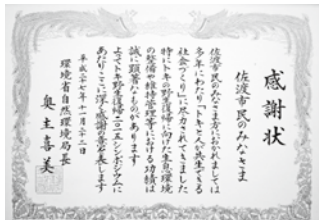 感謝状
佐渡市民のみなさま
佐渡市民のみなさま方におかれましては
多年にわたり「トキと人が共生できる
社会づくり」に尽力されてきました
特にトキの野生復帰に向けた生息環境
の整備や維持管理等における功績は
誠に顕著なものがあります
よってトキ野生復帰二〇一五シンポジウムに
あたりここに深く感謝の意を表します
平成二十七年十一月二十二日
環境省自然環境局長
奥主喜美